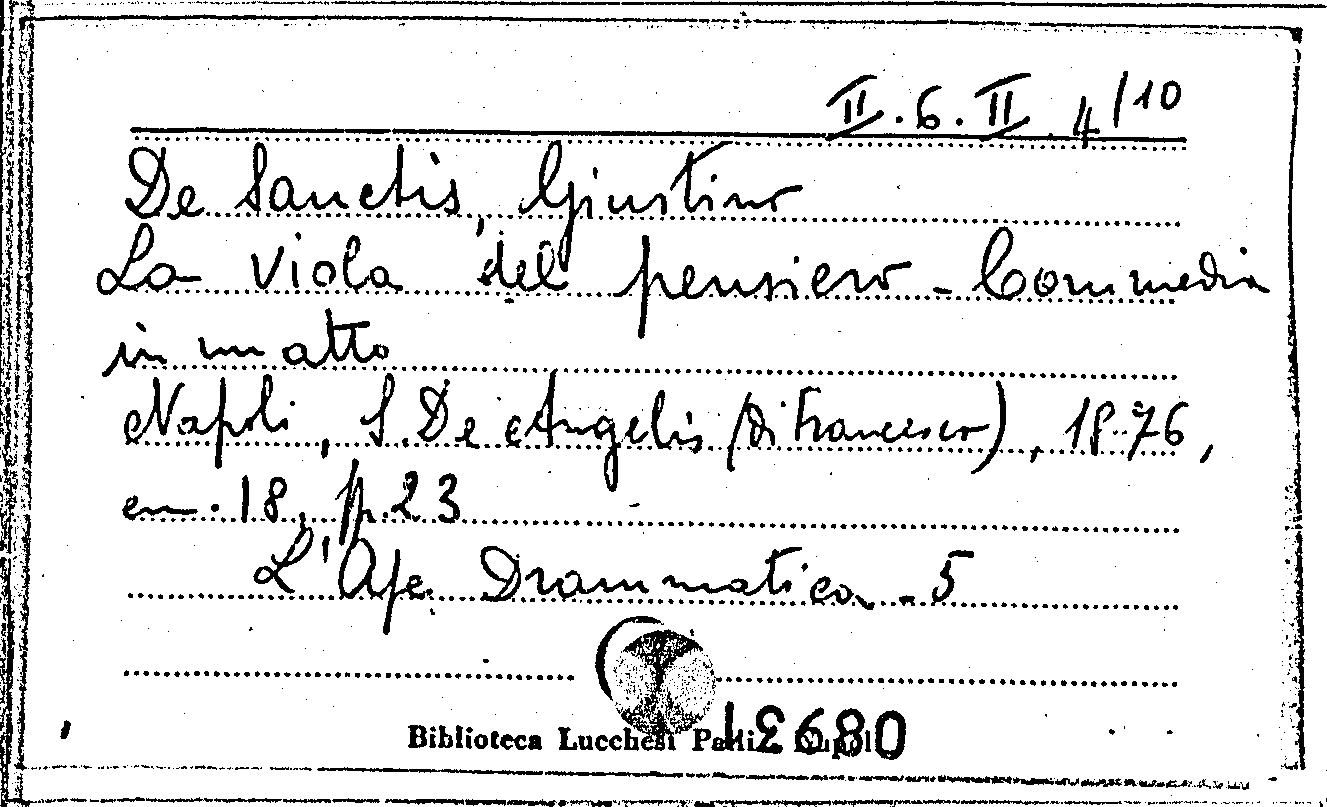 II.6.II.4/10
De Sanctis, Giustino
La viola del pensiero - Commedia
in un atto
Napoli, S. De Angelis (di Francesco), 1876,
in-18, p. 23
L'Ape Drammatica - 5
Biblioteca Lucchesi Palli - Napoli